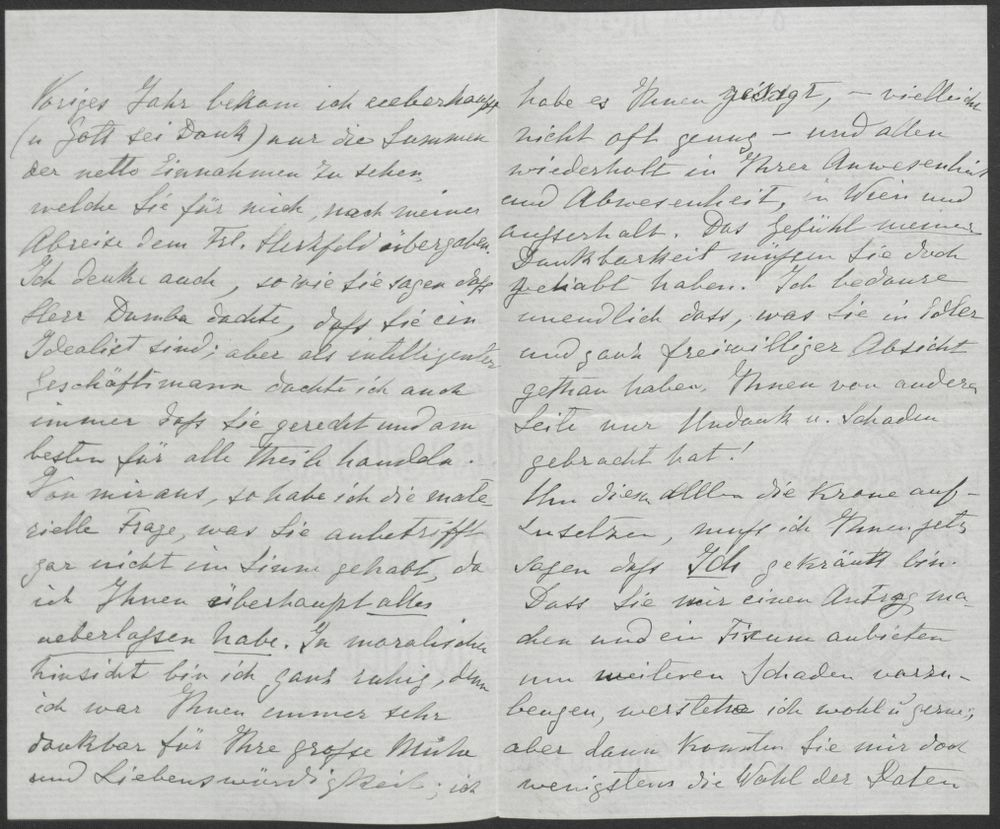 Voriges Jahr bekam ich ueberhaupt
(u Gott sei Dank) nur die Summen
der netto Einnahmen zu sehen,
welche Sie für mich, nach meiner
Abreise dem Frl. Herzfeld übergaben.
Ich denke auch, so wie Sie sagen daſs
Herr Dumba dachte, daſs Sie ein
Idealist sind; aber als intelligenter
Geschäftsmann dachte ich auch
immer daſs Sie gerecht und am
besten für alle Theile handeln.
Von mir aus, so habe ich die mate-
rielle Frage, was Sie anbetrifft
gar nicht im Sinne gehabt, da
ich Ihnen überhaupt alles
ueberlaſsen habe. In moralischer
hinsicht bin ich ganz ruhig, denn
ich war Ihnen immer sehr
dankbar für Ihre groſse Mühe
und Liebenswürdigkeit; ich
habe es Ihnen gesagt, – vielleicht
nicht oft genug – und allen
wiederholt in Ihrer Anwesenheit
und Abwesenheit, in Wien und
auſserhalt. Das Gefühl meiner
Dankbarkeit müſsen Sie doch
gehabt haben. Ich bedaure
unendlich dass, was Sie in edler
und ganz freiwilliger Absicht
gethan haben, Ihnen von anderer
Seite nur Undank u. Schaden
gebracht hat!
Um diesen Allen die Krone auf-
zusetzen, muſs ich Ihnen jetz
sagen daſs Ich gekränkt bin.
Dass Sie mir einen Antrag ma-
chen und ein Fixum anbieten
um weiteren Schaden vorzu-
beugen, verstehe ich wohl u gerne;
aber dann konnten Sie mir doch
wenigstens die Wahl der Daten